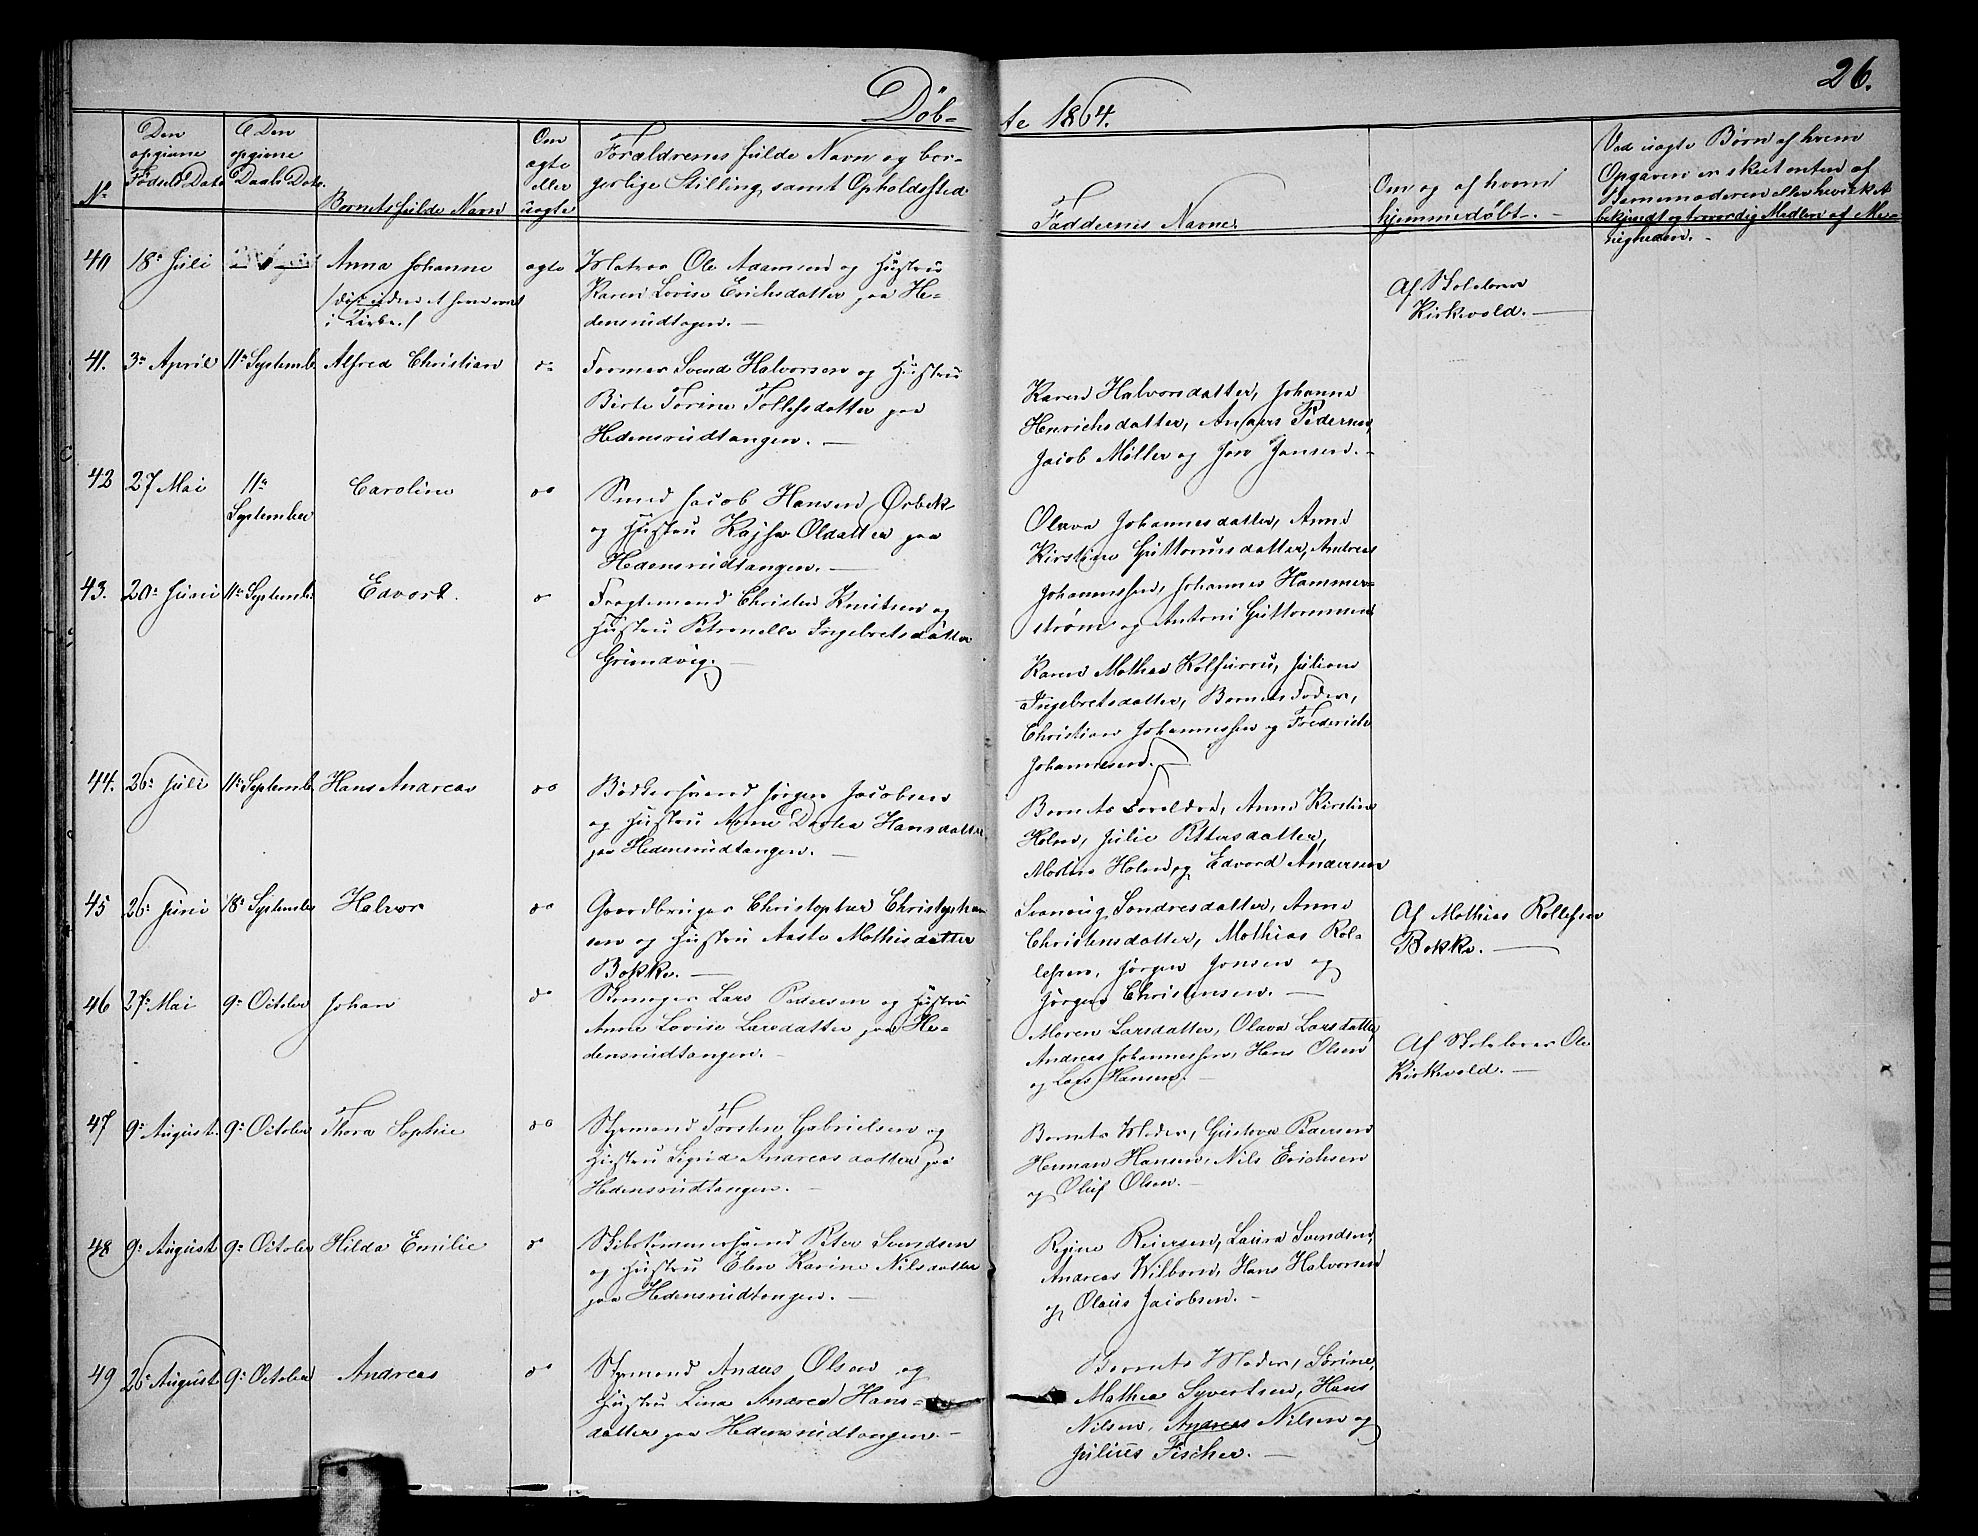 Døb-
te 1864.
26.
No
Den opgivne Fødsels Dato
Den opgivne Daabs Dato
Barnets fulde Navn
Om ægte eller uægte
Forældrenes fulde Navn og bor-
gerlige Stilling samt Opholdssted
Faddernes Navne
Om og af hvem
hjemmedøbt. -
Ved uægte Børn af hvem
Opgaven er skeet enten af
Barnemoderen eller hvilket
bekjendt og troværdig Medlem af Me-
nigheden. -
40 18de Juli Anna Johanne ægte Matros Ole Adamsen og Hustru
Karen Lovise Erichsdatter paa He-
i Kirke
densrudtangen. -
Af Skolelærer
Kirkevold. -
41. 3de April 11te Septemb. Alfred Christian do Former Svend Halvorsen og Hustru
Birte Torine Tollefsdatter paa
Hedensrudtangen. -
Karen Halvorsdatter, Johanne
Henrichsdatter, Anders Pedersen,
Jacob Møller og Jon Jansen. -
42 27 Mai 11te September Caroline do Smed Jacob Hansen Ørbek
og Hustru Kajsa Olsdatter paa
Hedensrudtangen. -
Olava Johannesdatter, Anne
Kirstine Guttormsdatter, Andreas
Johannessen, Johannes Hammer-
strøm og Antoni Guttormsen
43. 20de Juni 11te Septemb. Edvart. do Fragtemand Christen Knutsen og
Hustru Petronelle Ingebretsdatter
Grundvig. -
Karen Mathea Rolfsuru, Juliane
Ingebretsdatter, Barnets Fader,
Christian Johannessen og Frederich
Johannesen. -
44. 26de Juli 11te Septemb. Hans Andreas do Bødkersvend Jørgen Jacobsen
og Hustru Anne Dortea Hansdatter
paa Hedensrudtangen. -
Barnets Forældre, Anne Kirstine
Holm, Julie Pettersdatter,
Martin Holm og Edvard Andersen
45 26de Juni 18de September Halvor do Gaardbruger Christopher Christophen
sen og Hustru Aaste Mathisdatter
Bakke. -
Svanaug Sondresdatter, Anne
Christensdatter, Mathias Rol-
lefsen, Jørgen Jonsen og
Jørgen Christensen. -
Af Mathias Rollefsen
Bakke. -
46 27de Mai 9de October Johan do Lars Pedersen og Hustru
Anne Lovise Larsdatter paa He-
densrudtangen. -
Maren Larsdatter, Olava Larsdatter,
Andreas Johannessen, Hans Olsen
og Lars Hansen. -
Af Skolelærer Ole
Kirkevold. -
47 9de August. 9de October Thora Sophie do Styrmand Torsten Gabrielsen og
Hustru Sigrid Andreasdatter paa
Hedensrudtangen. -
Barnets Moder, Gustava Pedersen
Herman Hansen, Nils Erichsen
og Oluf Olsen. -
48 9de August 9de October Hilda Emilie do Skibstømmersvend Peter Svendsen
og Hustru Elen Karine Nilsdatter
paa Hedensrudtangen. -
Regine Reiersen, Laura Svendsen,
Andreas Wilborn, Hans Halvorsen
og Olaus Jacobsen. -
49 26de August 9de October Andreas do Styrmand Anders Olsen og
Hustru Lina Andrea Hans-
datter paa Hedensrudtangen. -
Barnets Moder, Sørine
Mathea Syvertsen, Hans
Nilsen, Andreas Nilsen og
Julius Fischer. -